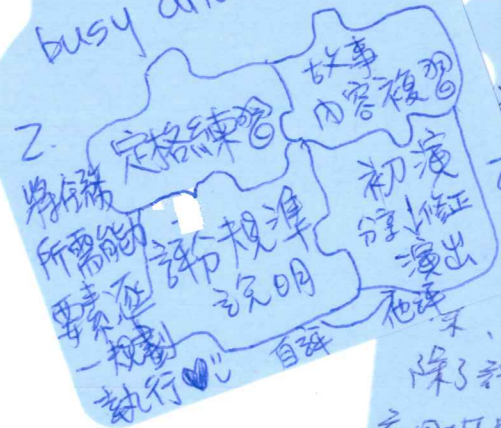 busy an
2.
將任務
所需能力
要素逐
一規劃
執行
定格練習
故事
內容複習
評分規準
說明
初演
分享↓修正
演出
自評
他評
除了